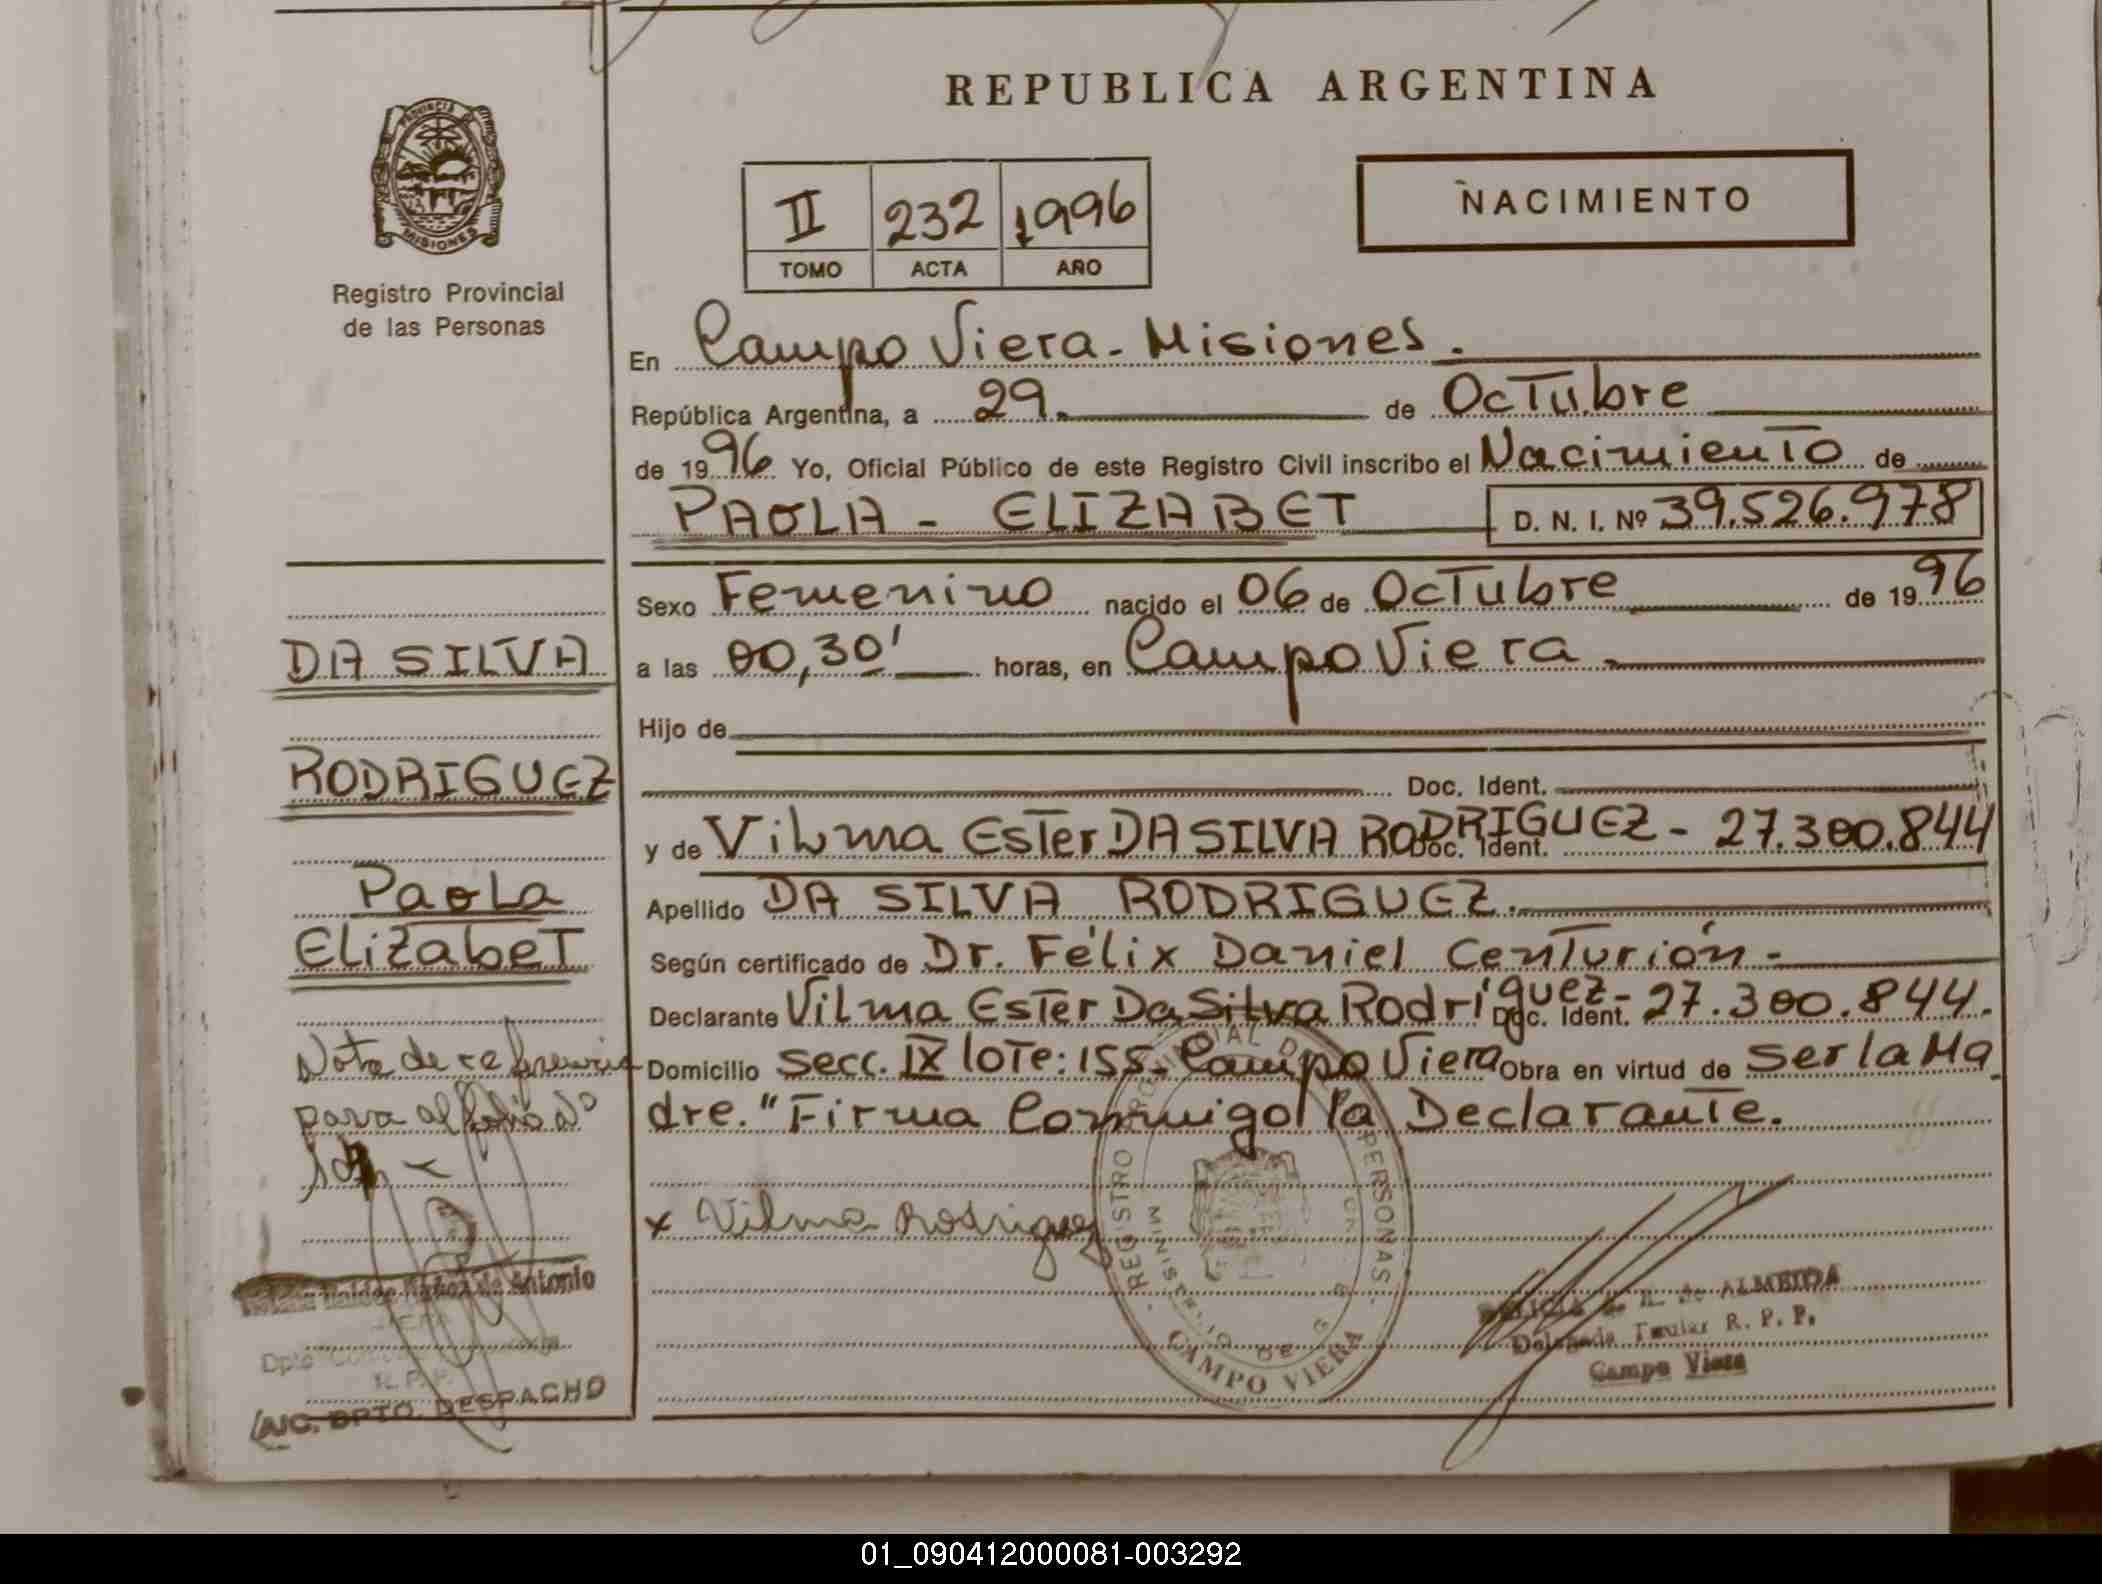 REPUBLICA ARGENTINA
PROVINCIA DE MISIONES
Registro Provincial
de las Personas
II 232 1996
TOMO ACTA AÑO
NACIMIENTO
En Campo Viera - Misiones.
República Argentina, a 29. de Octubre
de 1996 Yo, Oficial Público de este Registro Civil inscribo el Nacimiento de
PAOLA - ELIZABET D. N. I. Nº 39.526.978
Sexo Femenino nacido el 06 de Octubre de 1996
a las 00,30' horas, en Campo Viera.
Hijo de
Doc. Ident.
y de Vilma Ester DA SILVA RODRIGUEZ - Doc. Ident. 27.300.844
Apellido DA SILVA RODRIGUEZ.
Según certificado de Dr. Félix Daniel Centurión -
Declarante Vilma Ester Da Silva Rodríguez - Doc. Ident. 27.300.844.
Domicilio Secc. IX lote: 155. Campo Viera Obra en virtud de ser la Ma
dre. "Firma Conmigo la Declarante.
x Vilma Rodriguez
DA SILVA
RODRIGUEZ
Paola
Elizabet
Nota de referencia
para al folio Nº
de Antonio
Dpto
R. P. P.
A/C. DPTO. DESPACHO
REGISTRO PROVINCIAL DE PERSONAS
MINISTERIO DE
CAMPO VIERA
de ALMEIDA
Delegada Titular R. P. P.
Campo Viera
01_090412000081-003292